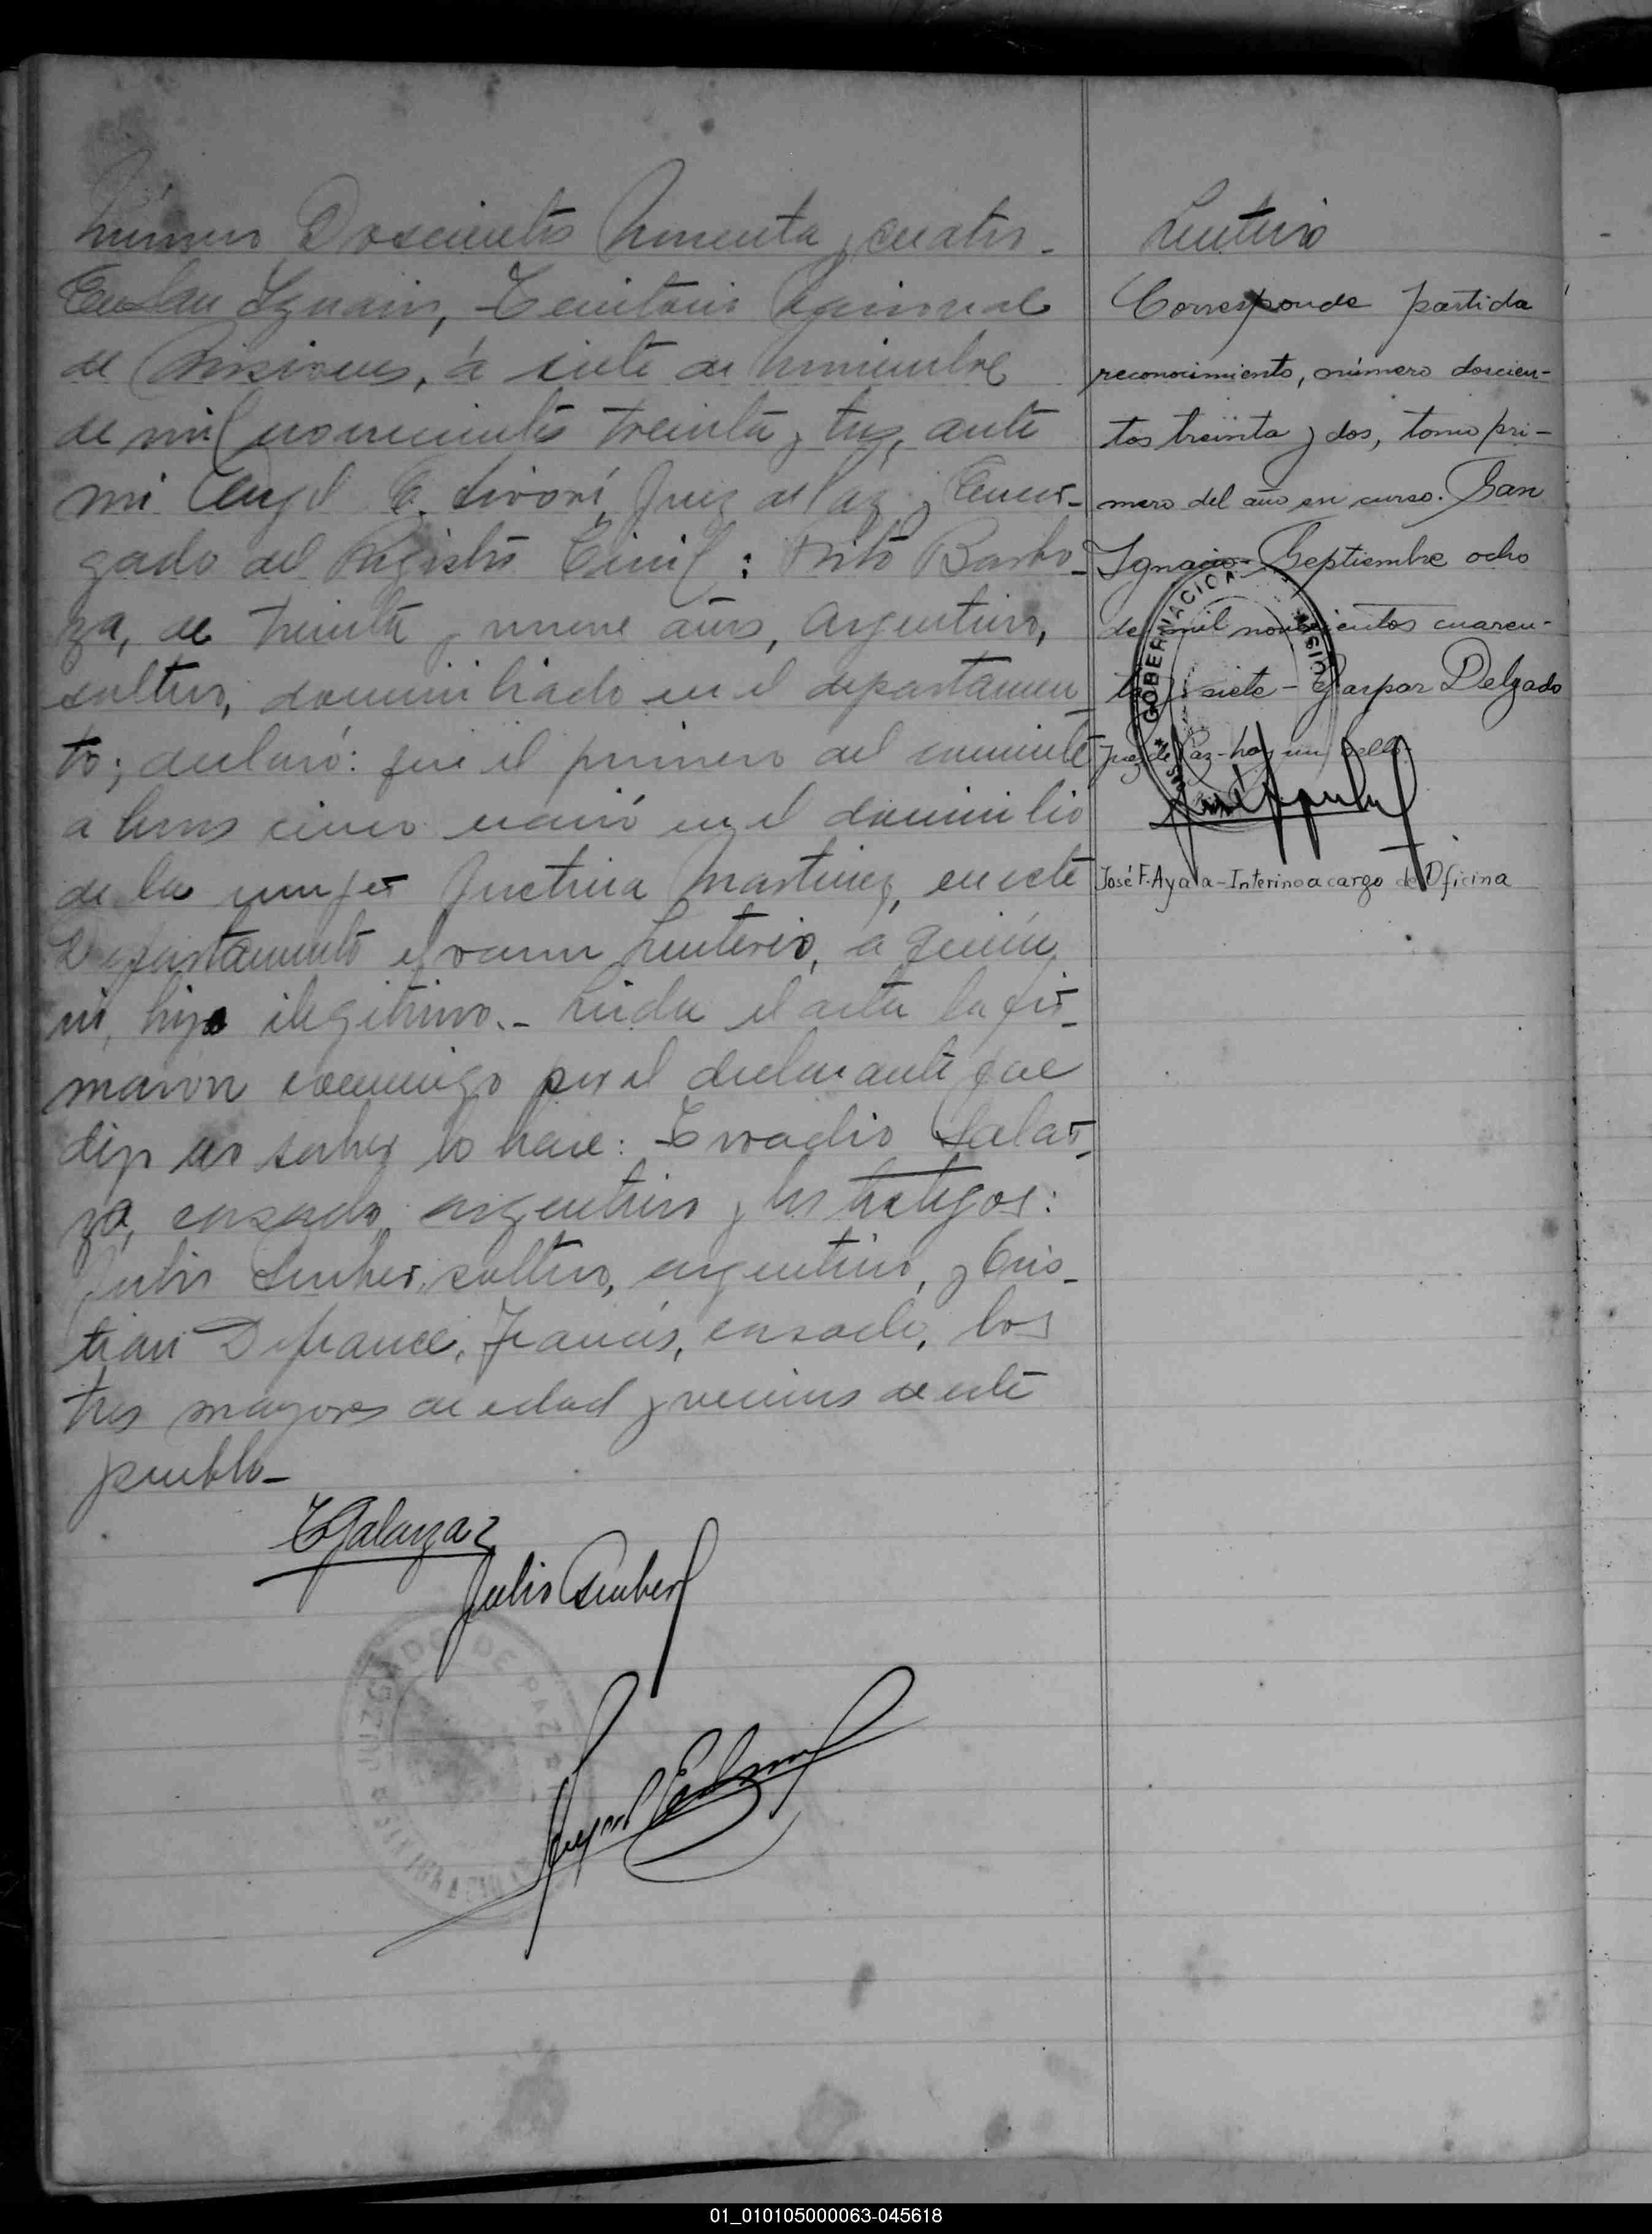 Número Doscientos Noventa y cuatro-
En San Ignacio, Territorio Nacional
de Misiones, á siete de Noviembre
de mil novecientos treinta y tres, ante
mi Angel E. Juez de Paz y Encar-
gado del Registro Civil: Barbo-
za, de treinta y nueve años, Argentino,
soltero, domiciliado en el departamen
to; declaró: que el primero del corriente
a horas cinco nació en el domicilio
de la mujer Justina Martinez, en este
Departamento el varon Lenterio, a quién
hijo ilegitimo.- Leida el acta la fir-
maron conmigo por el declarante que
dijo no saber lo hace: Evadio Galar-
za, casado, argentino y los testigos:
Julio soltero, argentino, y Cris-
tian Defrance, Francés, casado, los
tres mayores de edad y vecinos de este
pueblo-
EGalarza
Julio
JUZGADO DE PAZ
SAN IGNACIO
Angel
Corresponde partida
reconocimiento, número doscien-
tos treinta y dos, tomo pri-
mero del año en curso. San
Ignacio- Septiembre ocho
de mil novecientos cuaren-
ta y siete - Gaspar Delgado
Juez de Paz - hay un sello-
GOBERNACION
MISIONES
José F. Ayala - Interino a cargo de Oficina
01_010105000063-045618